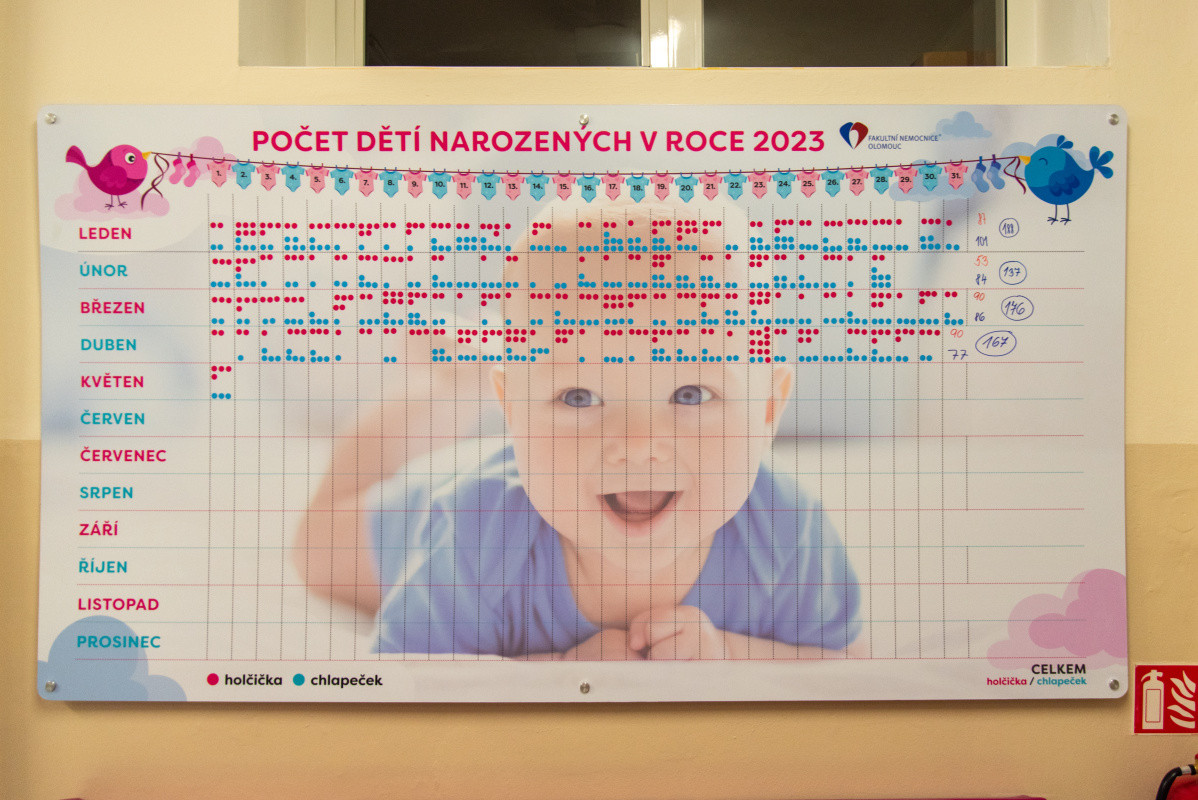 POČET DĚTÍ NAROZENÝCH V ROCE 2023
FAKULTNÍ NEMOCNICE
OLOMOUC
1. 2. 3. 4. 5. 6. 7. 8. 9. 10. 11. 12. 13. 14. 15. 16. 17. 18. 19. 20. 21. 22. 23. 24. 25. 26. 27. 28. 29. 30. 31.
LEDEN 87 101 188
ÚNOR 53 84 137
BŘEZEN 90 86 176
DUBEN 90 77 167
KVĚTEN
ČERVEN
ČERVENEC
SRPEN
ZÁŘÍ
ŘÍJEN
LISTOPAD
PROSINEC
holčička chlapeček
CELKEM
holčička / chlapeček